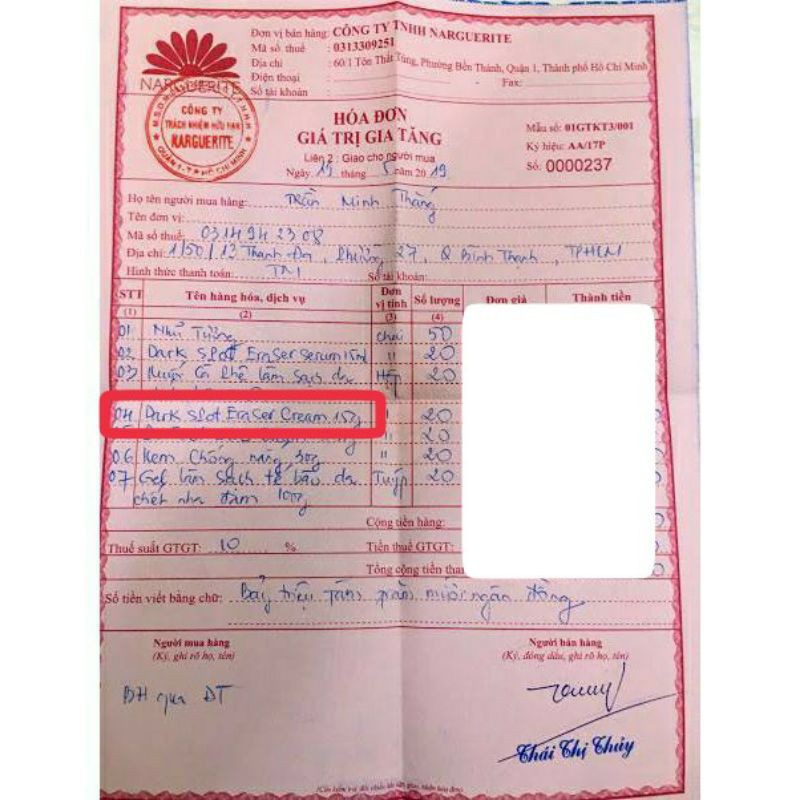 NARGUERITE
Đơn vị bán hàng: CÔNG TY TNHH NARGUERITE
Mã số thuế : 0313309251
Địa chỉ : 60/1 Tôn Thất Tùng, Phường Bến Thành, Quận 1, Thành phố Hồ Chí Minh
Điện thoại : - Fax:
Số tài khoản :
M.S.D.N
CÔNG TY
TRÁCH NHIỆM HỮU HẠN
NARGUERITE
QUẬN 1 - T.P HỒ CHÍ MINH
HÓA ĐƠN
GIÁ TRỊ GIA TĂNG
Liên 2 : Giao cho người mua
Ngày 15 tháng 5 năm 2019
Mẫu số: 01GTKT3/001
Ký hiệu: AA/17P
Số: 0000237
Họ tên người mua hàng: Trần Minh Thắng
Tên đơn vị:
Mã số thuế: 0314942308
Địa chỉ: 1/50/13 Thanh Đa, Phường 27, Q Bình Thạnh, TPHCM
Hình thức thanh toán: TM Số tài khoản:
STT Tên hàng hóa, dịch vụ Đơn vị tính Số lượng Đơn giá Thành tiền
(1) (2) (3) (4)
01 Nhũ Tương chai 50
02 Dark Spot Eraser serum 15ml " 20
03 làm sạch da Hộp 20
04 Dark Spot Eraser Cream 15g 20
20
06 Kem Chống nắng 30g " 20
07 Gel làm sạch tế bào da Tuýp 20
chết nha đam 100g
Cộng tiền hàng:
Thuế suất GTGT: 10 % Tiền thuế GTGT:
Tổng cộng tiền
Số tiền viết bằng chữ: Bảy triệu tám trăm mười ngàn đồng
Người mua hàng
(Ký, ghi rõ họ, tên)
Người bán hàng
(Ký, đóng dấu, ghi rõ họ, tên)
BH qua ĐT
Thái Thị Thủy
(Cần kiểm tra, đối chiếu khi lập, giao, nhận hóa đơn)